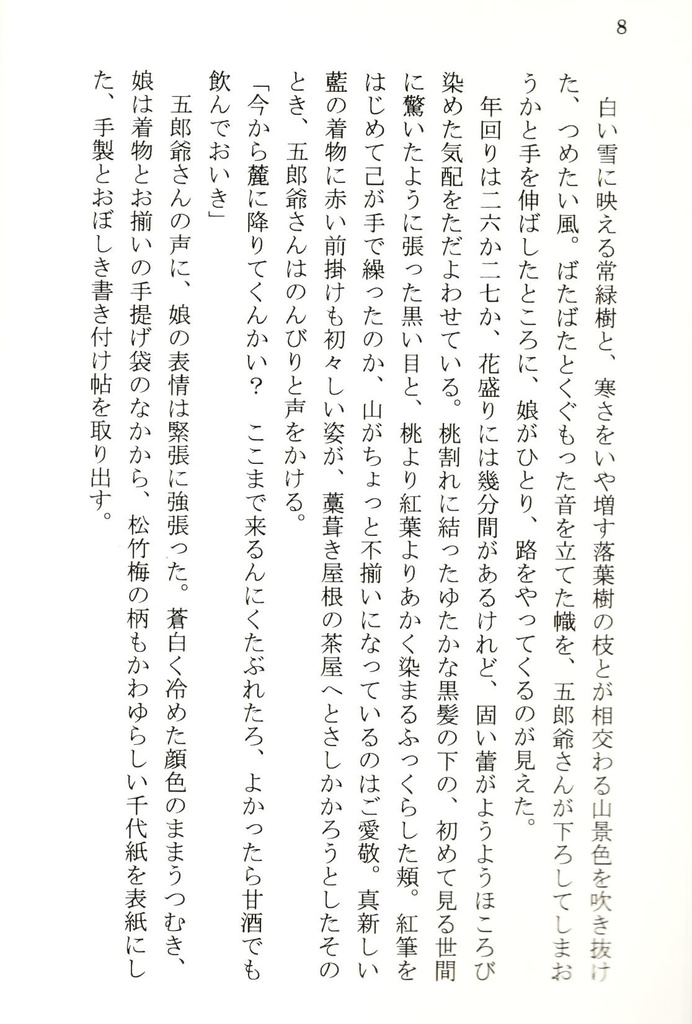 8
白い雪に映える常緑樹と、寒さをいや増す落葉樹の枝とが相交わる山景色を吹き抜け
た、つめたい風。ばたばたとくぐもった音を立てた幟を、五郎爺さんが下ろしてしまお
うかと手を伸ばしたところに、娘がひとり、路をやってくるのが見えた。
年回りは二六か二七か、花盛りには幾分間があるけれど、固い蕾がようようほころび
染めた気配をただよわせている。桃割れに結ったゆたかな黒髪の下の、初めて見る世間
に驚いたように張った黒い目と、桃より紅葉よりあかく染まるふっくらした頬。紅筆を
はじめて己が手で繰ったのか、山がちょっと不揃いになっているのはご愛敬。真新しい
藍の着物に赤い前掛けも初々しい姿が、藁葺き屋根の茶屋へとさしかかろうとしたその
とき、五郎爺さんはのんびりと声をかける。
「今から麓に降りてくんかい？　ここまで来るんにくたぶれたろ、よかったら甘酒でも
飲んでおいき」
五郎爺さんの声に、娘の表情は緊張に強張った。蒼白く冷めた顔色のままうつむき、
娘は着物とお揃いの手提げ袋のなかから、松竹梅の柄もかわゆらしい千代紙を表紙にし
た、手製とおぼしき書き付け帖を取り出す。